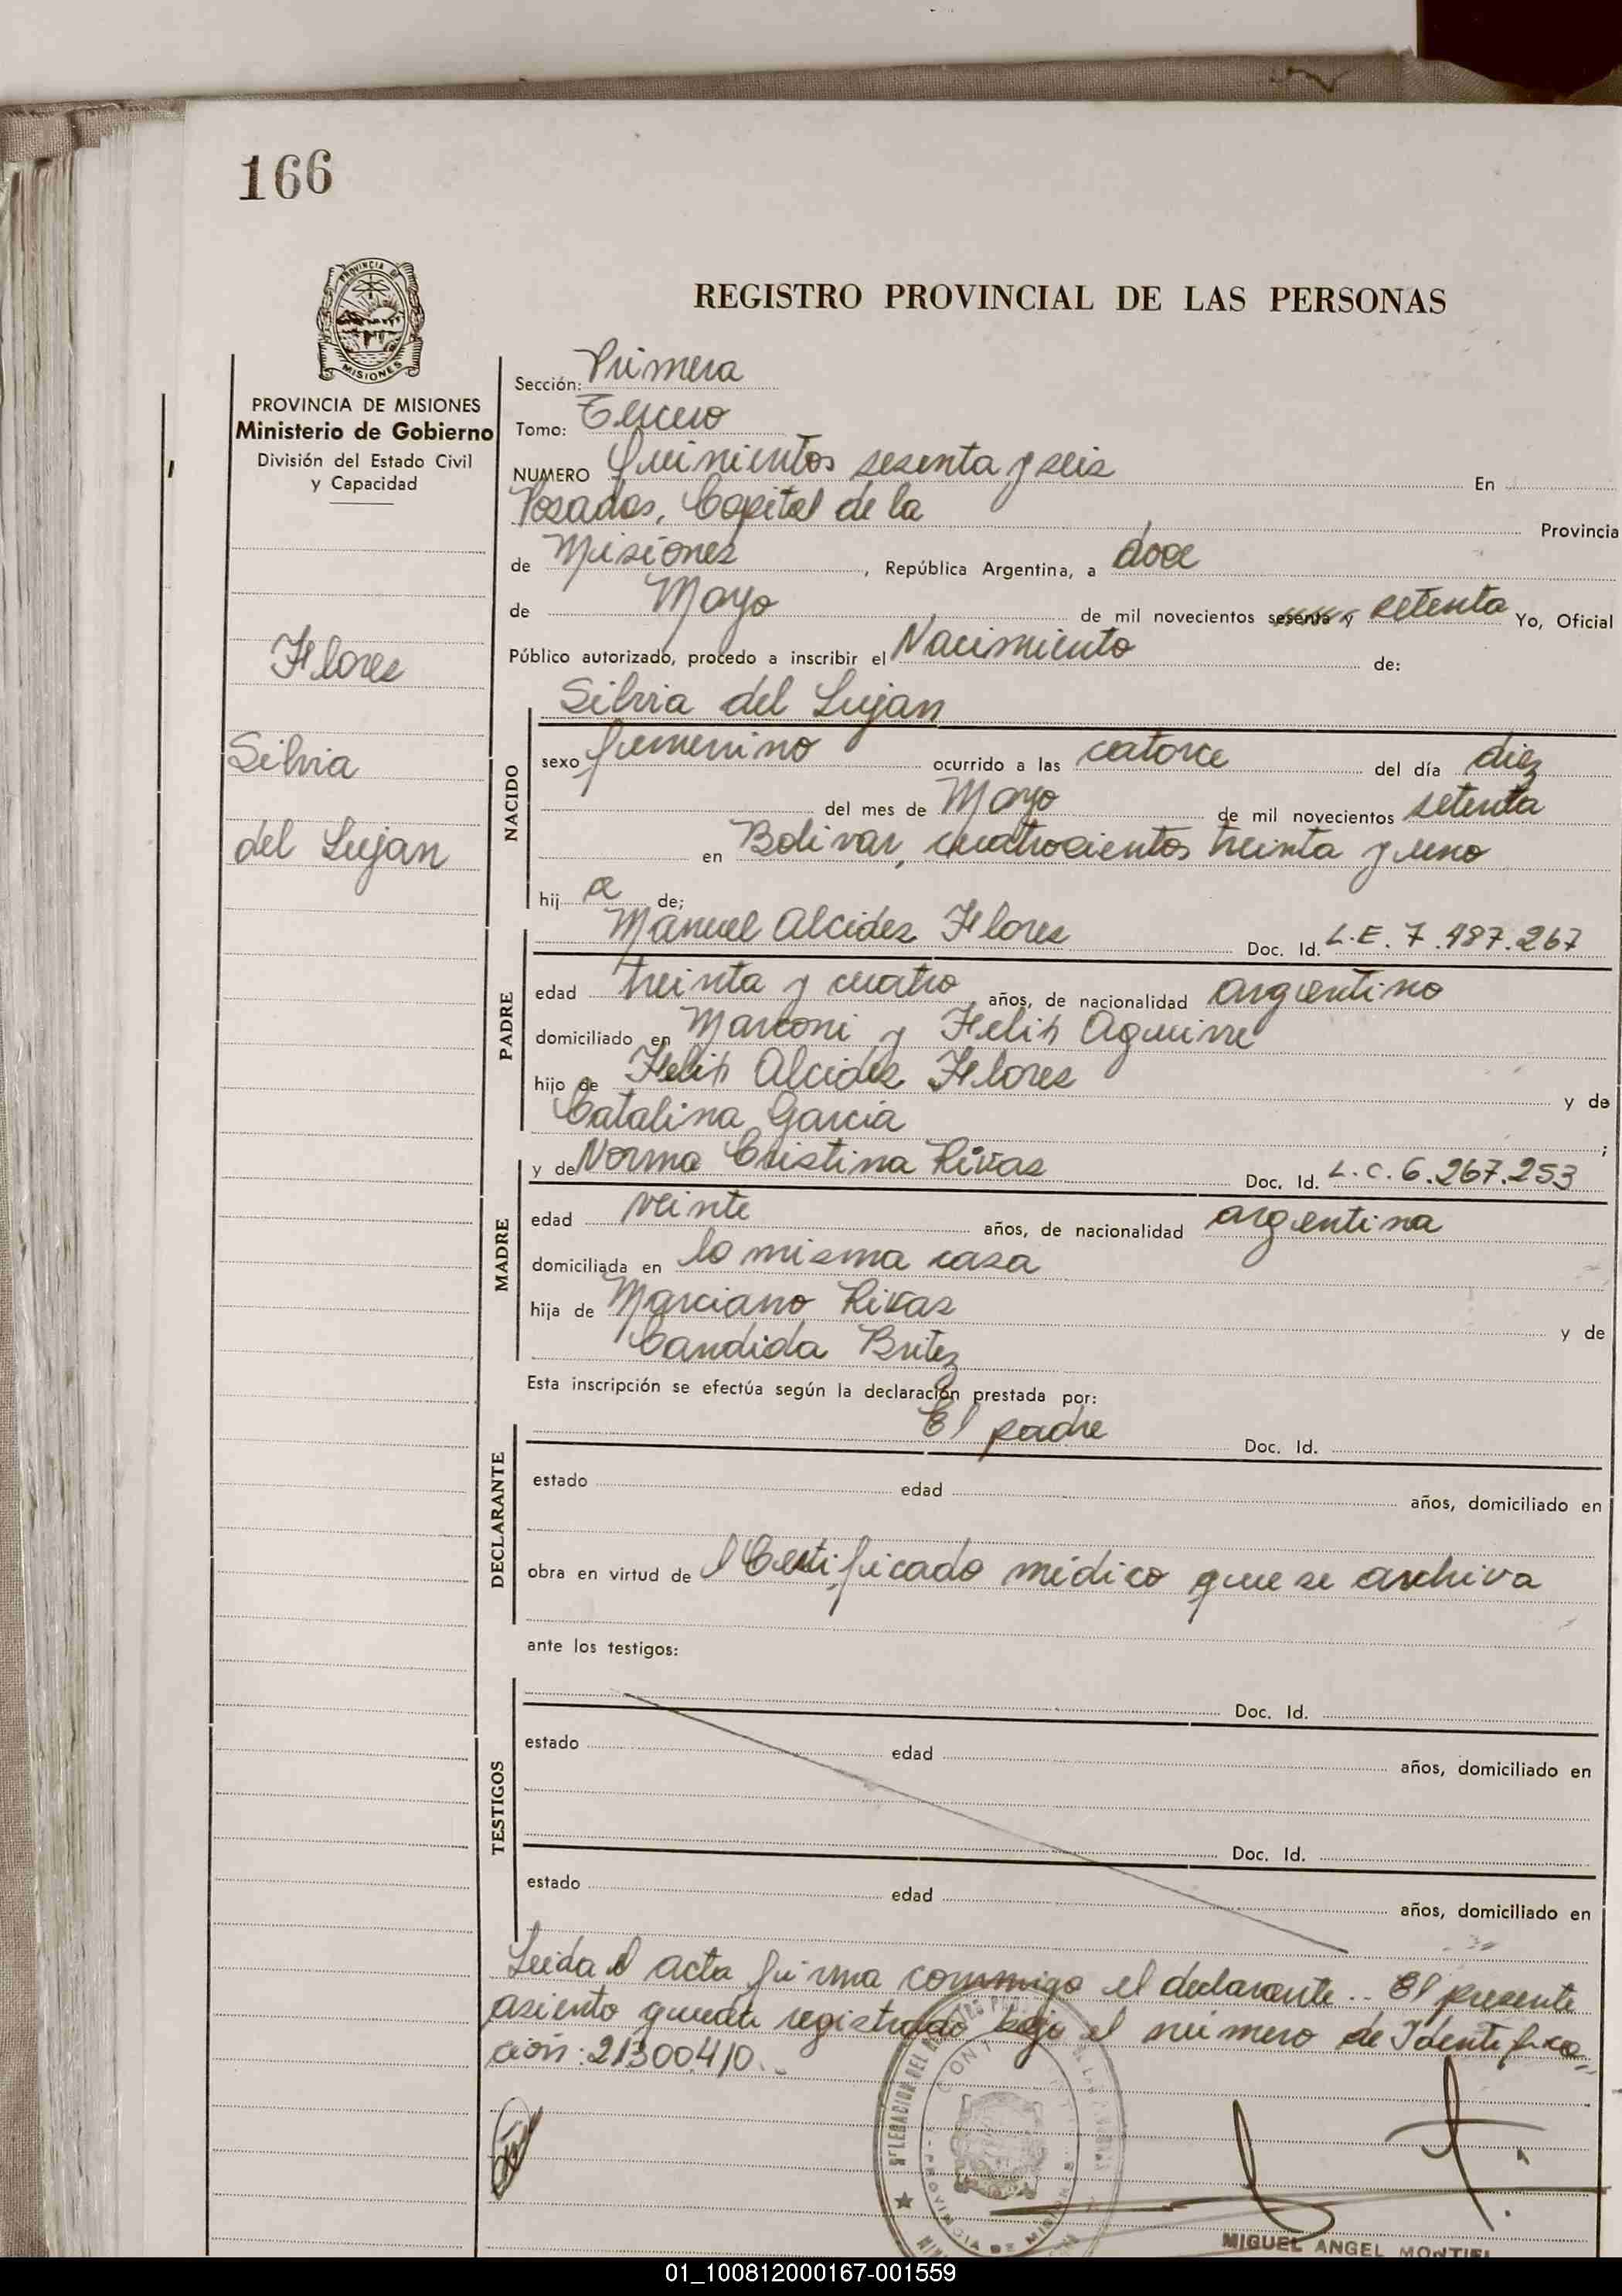 166
PROVINCIA DE
MISIONES
REGISTRO PROVINCIAL DE LAS PERSONAS
PROVINCIA DE MISIONES
Ministerio de Gobierno
División del Estado Civil
y Capacidad
Flores
Silvia
del Lujan
Sección: Primera
Tomo: Tercero
NUMERO Quinientos sesenta y seis En
Posadas, Capital de la Provincia
de Misiones, República Argentina, a doce
de Mayo de mil novecientos sesenta y setenta Yo, Oficial
Público autorizado, procedo a inscribir el Nacimiento de:
Silvia del Lujan
NACIDO
sexo femenino ocurrido a las catorce del día diez
del mes de Mayo de mil novecientos setenta
en Bolivar, cuatrocientos treinta y uno
hij a de;
PADRE
Manuel Alcides Flores Doc. Id. L.E. 7.487.267
edad treinta y cuatro años, de nacionalidad argentino
domiciliado en Marconi y Felix Aguirre
hijo de Felix Alcides Flores y de
Catalina Garcia ;
MADRE
y de Norma Cristina Rivas Doc. Id. L.C. 6.267.253
edad veinte años, de nacionalidad argentina
domiciliada en la misma casa
hija de Marciano Rivas y de
Candida Britez
Esta inscripción se efectúa según la declaración prestada por:
DECLARANTE
El padre Doc. Id.
estado edad años, domiciliado en
obra en virtud de l Certificado médico que se archiva
ante los testigos:
TESTIGOS
Doc. Id.
estado edad años, domiciliado en
Doc. Id.
estado edad años, domiciliado en
Leida el acta firma conmigo el declarante.. El presente
asiento queda registrado bajo el número de Identifica-
ción: 21300410.
PROVINCIA DE MISIONES
MIGUEL ANGEL MONTIEL
01_100812000167-001559